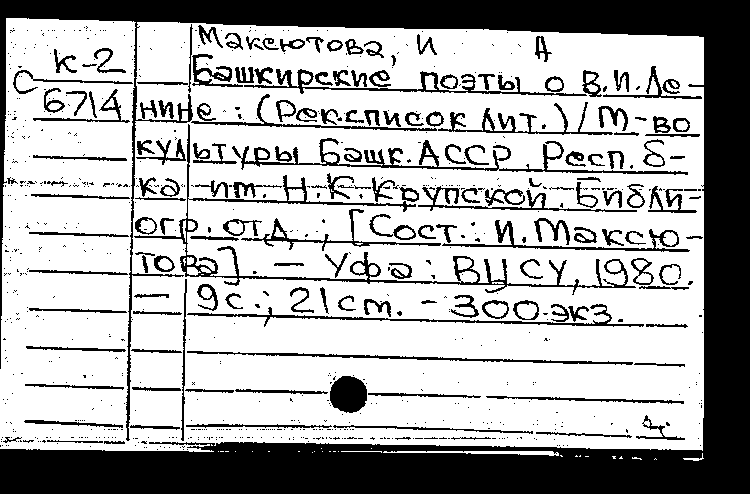 Максютова, И А
К-2
Башкирские поэты о В.И.Ле-
С 6714
нине : (Рек.список лит.) / М-во
культуры Башк.АССР, Респ.б-
ка им. Н.К.Крупской. Библи-
огр. отд. ; [Сост.: И.Максю-
това]. — Уфа : ВЦ СУ, 1980.
— 9с.; 21ст. - 300.экз.